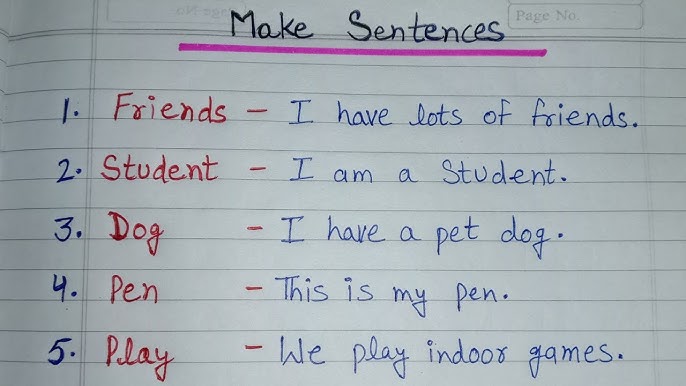 Page No.
Make Sentences
1. Friends - I have lots of friends.
2. Student - I am a Student.
3. Dog - I have a pet dog.
4. Pen - This is my pen.
5. Play - We play indoor games.